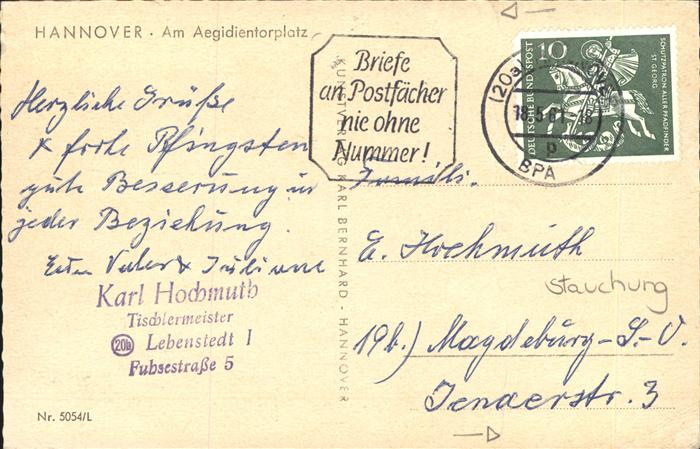 HANNOVER · Am Aegidientorplatz
Herzliche Grüße
& frohe Pfingsten
gute Besserung in
jeder Beziehung.
Euer Vater & Juliane
Karl Hochmuth
Tischlermeister
20b Lebenstedt I
Fuhsestraße 5
Nr. 5054/L
KARL BERNHARD - HANNOVER
Briefe
an Postfächer
nie ohne
Nummer!
(20a)
18.5.61.-18
p
BPA
10
DEUTSCHE BUNDESPOST
SCHUTZPATRON ALLER PFADFINDER
ST. GEORG
Familie
E. Hochmuth
Stauchung
19b.) Magdeburg-S.-O.
Jenaerstr. 3